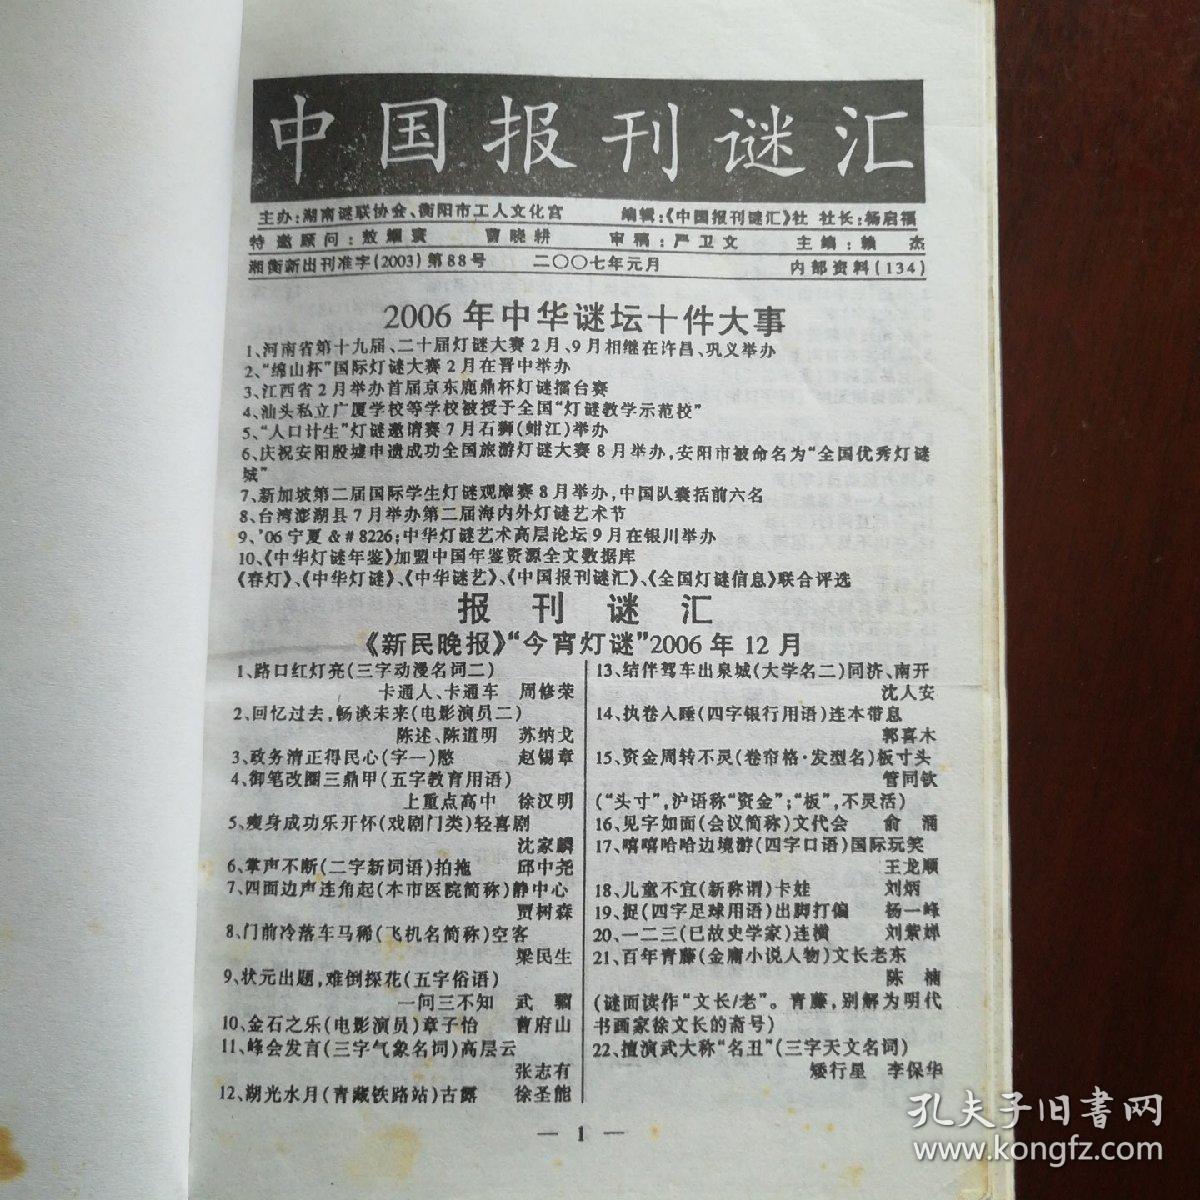 中国报刊谜汇
主办:湖南谜联协会、衡阳市工人文化宫 编辑:《中国报刊谜汇》社 社长:杨启福
特邀顾问:敖耀寰 曹晓耕 审稿:严卫文 主编:赖杰
湘衡新出刊准字(2003)第88号 二〇〇七年元月 内部资料(134)
2006年中华谜坛十件大事
1、河南省第十九届、二十届灯谜大赛2月、9月相继在许昌、巩义举办
2、“绵山杯”国际灯谜大赛2月在晋中举办
3、江西省2月举办首届京东鹿鼎杯灯谜擂台赛
4、汕头私立广厦学校等学校被授予全国“灯谜教学示范校”
5、“人口计生”灯谜邀请赛7月石狮(蚶江)举办
6、庆祝安阳殷墟申遗成功全国旅游灯谜大赛8月举办,安阳市被命名为“全国优秀灯谜
城”
7、新加坡第二届国际学生灯谜观摩赛8月举办,中国队囊括前六名
8、台湾澎湖县7月举办第二届海内外灯谜艺术节
9、'06宁夏&#8226;中华灯谜艺术高层论坛9月在银川举办
10、《中华灯谜年鉴》加盟中国年鉴资源全文数据库
《春灯》、《中华灯谜》、《中华谜艺》、《中国报刊谜汇》、《全国灯谜信息》联合评选
报刊谜汇
《新民晚报》“今宵灯谜”2006年12月
1、路口红灯亮(三字动漫名词二)
卡通人、卡通车 周修荣
2、回忆过去,畅谈未来(电影演员二)
陈述、陈道明 苏纳戈
3、政务清正得民心(字一)愍 赵锡章
4、御笔改圈三鼎甲(五字教育用语)
上重点高中 徐汉明
5、瘦身成功乐开怀(戏剧门类)轻喜剧
沈家麟
6、掌声不断(二字新词语)拍拖 邱中尧
7、四面边声连角起(本市医院简称)静中心
贾树森
8、门前冷落车马稀(飞机名简称)空客
梁民生
9、状元出题,难倒探花(五字俗语)
一问三不知 武骝
10、金石之乐(电影演员)章子怡 曹府山
11、峰会发言(三字气象名词)高层云
张志有
12、湖光水月(青藏铁路站)古露 徐圣能
13、结伴驾车出泉城(大学名二)同济、南开
沈人安
14、执卷入睡(四字银行用语)连本带息
郭喜木
15、资金周转不灵(卷帘格·发型名)板寸头
管同钦
(“头寸”,沪语称“资金”;“板”,不灵活)
16、见字如面(会议简称)文代会 俞涌
17、嘻嘻哈哈边境游(四字口语)国际玩笑
王龙顺
18、儿童不宜(新称谓)卡娃 刘炳
19、捉(四字足球用语)出脚打偏 杨一峰
20、一二三(已故史学家)连横 刘紫婵
21、百年青藤(金庸小说人物)文长老东
陈楠
(谜面读作“文长/老”。青藤,别解为明代
书画家徐文长的斋号)
22、擅演武大称“名丑”(三字天文名词)
矮行星 李保华
— 1 —
孔夫子旧书网
www.kongfz.com